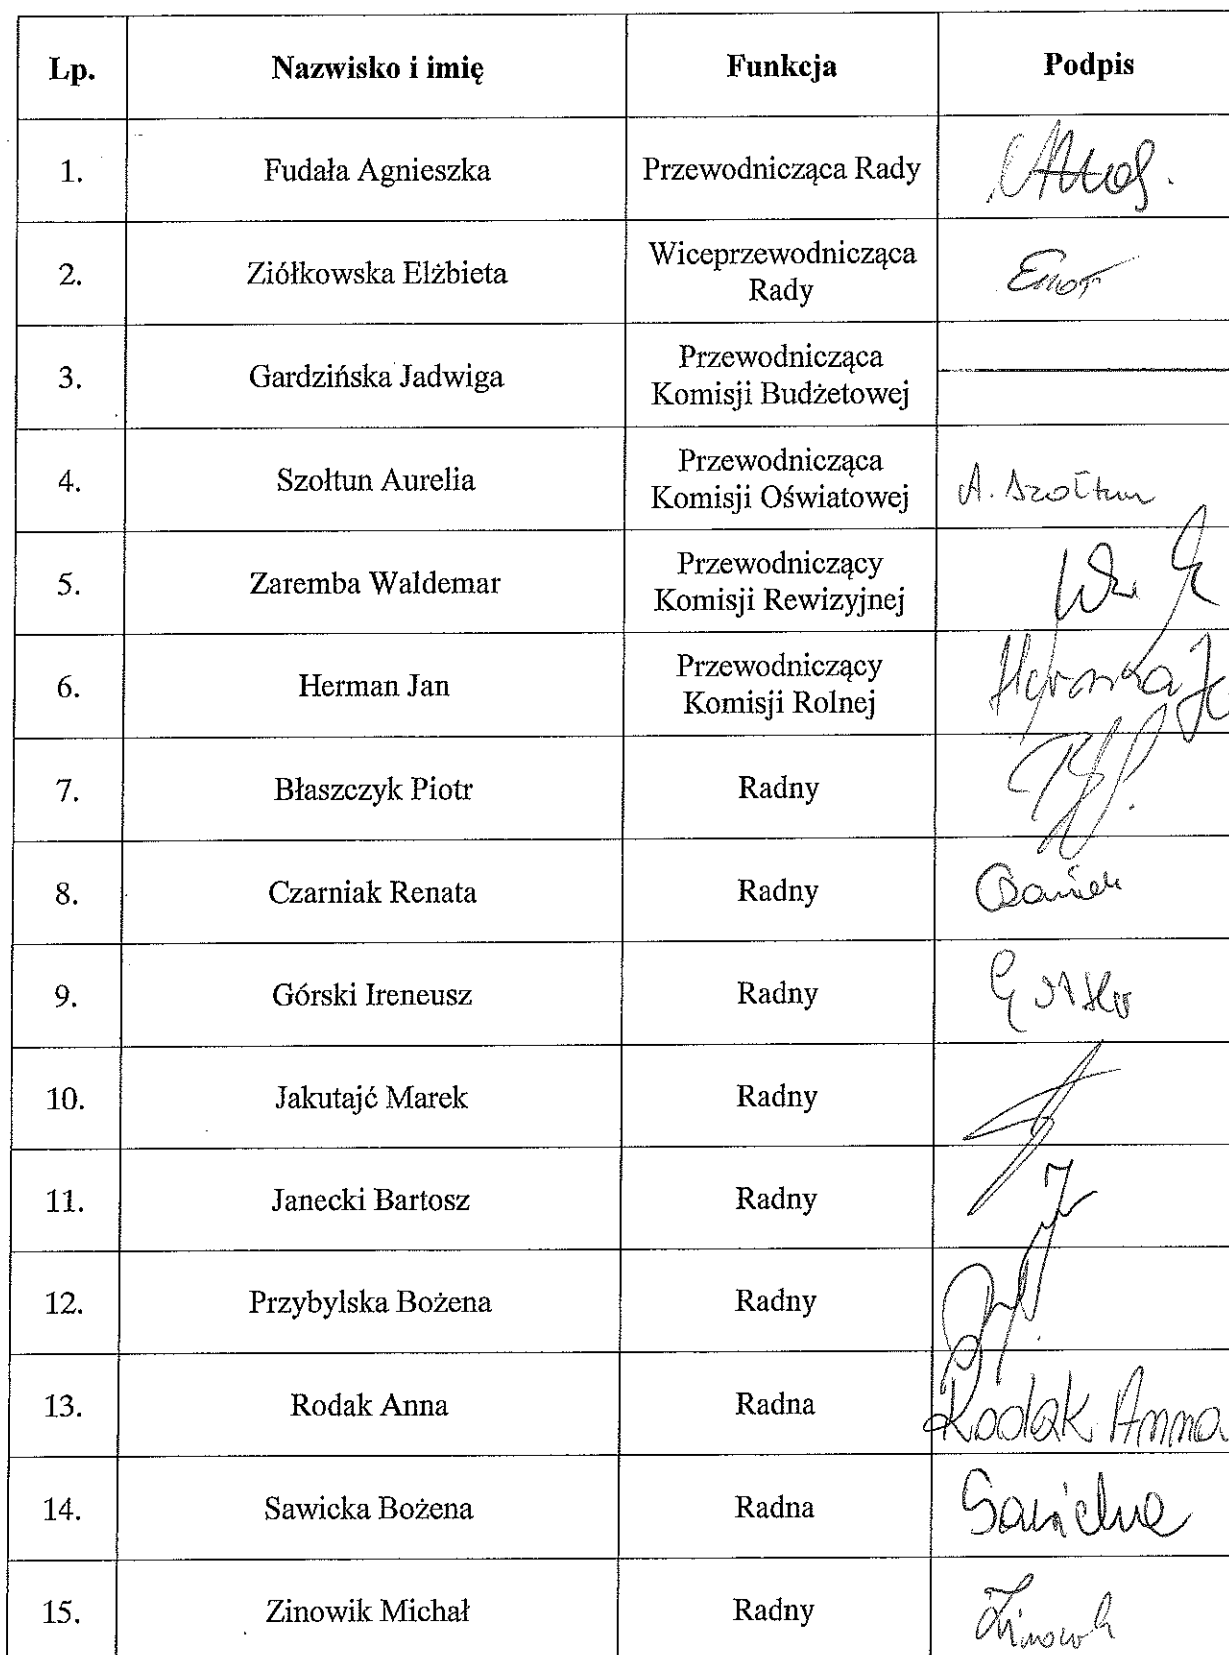 Lp. Nazwisko i imię Funkcja Podpis
1. Fudała Agnieszka Przewodnicząca Rady
2. Ziółkowska Elżbieta Wiceprzewodnicząca
Rady
3. Gardzińska Jadwiga Przewodnicząca
Komisji Budżetowej
4. Szołtun Aurelia Przewodnicząca
Komisji Oświatowej A. Szołtun
5. Zaremba Waldemar Przewodniczący
Komisji Rewizyjnej
6. Herman Jan Przewodniczący
Komisji Rolnej
7. Błaszczyk Piotr Radny
8. Czarniak Renata Radny
9. Górski Ireneusz Radny
10. Jakutajć Marek Radny
11. Janecki Bartosz Radny
12. Przybylska Bożena Radny
13. Rodak Anna Radna Rodak Anna
14. Sawicka Bożena Radna Sawicka
15. Zinowik Michał Radny Zinowik